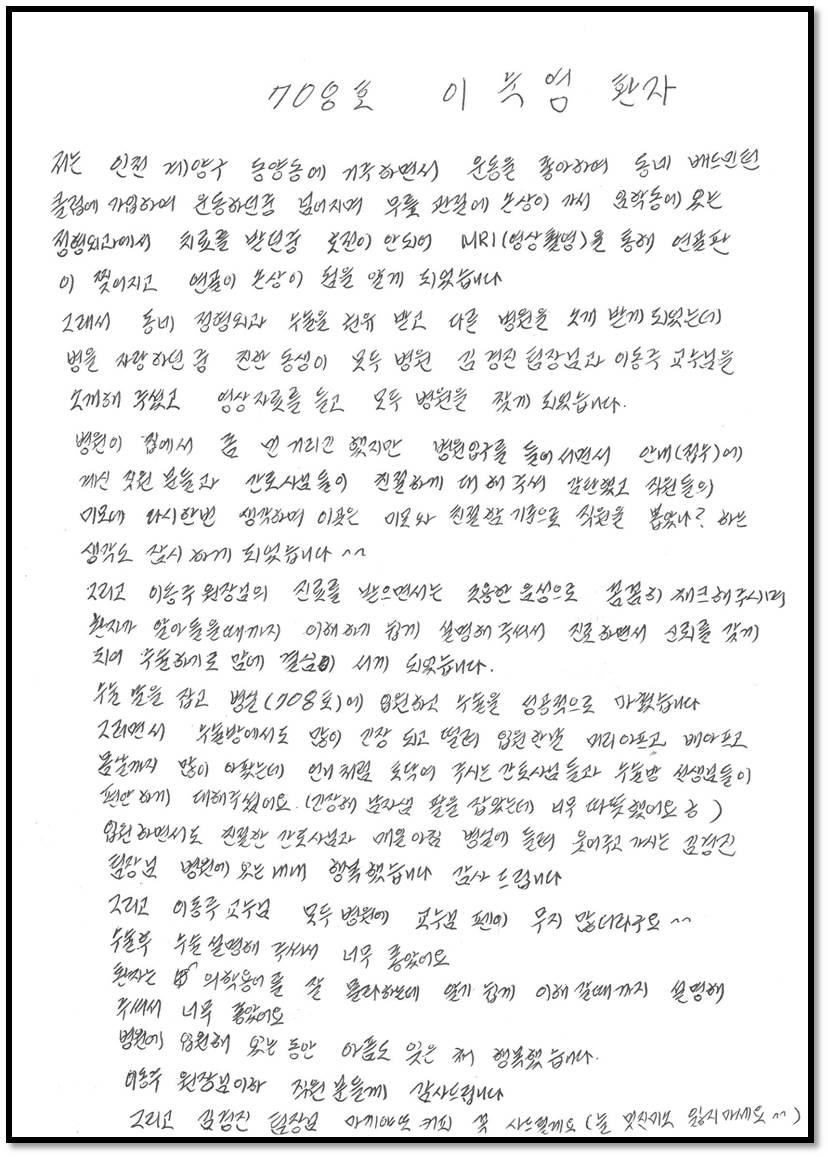 708호 이 환자
저는 인천 계양구 동양동에 거주하면서 운동을 좋아하여 동네 배드민턴
클럽에 가입하여 운동하던중 넘어지며 무릎 관절에 손상이 가서 있는
정형외과에서 치료를 받던중 호전이 안되어 MRI(영상촬영)을 통해 연골판
이 찢어지고 연골이 손상이 됨을 알게 되었습니다
그래서 동네 정형외과 수술을 권유 받고 다른 병원을 소개 받게 되었는데
병을 자랑하던 중 친한 동생이 모두 병원 김경진 팀장님과 이동주 교수님을
소개해 주셨고 영상자료를 들고 모두 병원을 찾게 되었습니다.
병원이 집에서 좀 먼 거리긴 했지만 병원입구를 들어서면서 안내(접수)에
계신 직원 분들과 간호사님들이 친절하게 대해 주셔 감탄했고 직원들의
미모에 다시한번 생각하며 이곳은 미모와 친절함 기준으로 직원을 뽑았나? 하는
생각도 잠시 하게 되었습니다 ^^
그리고 이동주 원장님의 진료를 받으면서는 조용한 음성으로 꼼꼼히 체크해주시며
환자가 알아들을때까지 이해하기 쉽게 설명해 주셔서 진료하면서 신뢰를 갖게
되어 수술하기로 맘에 결심이 서게 되었습니다.
수술 날을 잡고 병실(708호)에 입원하고 수술을 성공적으로 마쳤습니다
그러면서 수술방에서도 많이 긴장 되고 떨려 입원한날 머리아프고 배아프고
몸살까지 많이 아팠는데 언니처럼 토닥여 주시는 간호사님들과 수술방 선생님들이
편안하게 대해주셨어요. (긴장해 남자님 팔을 잡았는데 너무 따뜻했어요 ㅎ)
입원하면서도 친절한 간호사님과 매일아침 병실에 들려 웃어주고 가시는 김경진
팀장님 병원에 있는내내 행복했습니다 감사드립니다
그리고 이동주 교수님 모두병원에 교수님 팬이 무지 많더라구요 ^^
수술후 수술설명해 주셔서 너무 좋았어요
환자는 의학용어를 잘 몰라하는데 알기 쉽게 이해 갈때까지 설명해
주셔서 너무 좋았어요
병원에 입원해 있는 동안 아픔도 잊은 채 행복했습니다.
이동주 원장님이하 직원 분들께 감사드립니다
그리고 김경진 팀장님 마끼아또 커피 꼭 사드릴게요 (늘 멋진미소 잃지마세요 ^^)